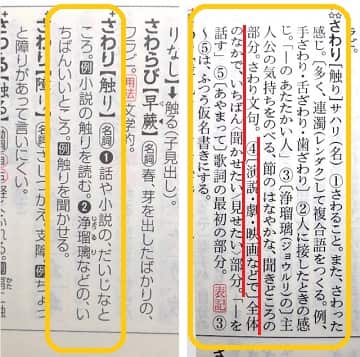 さわり【触り】(名)①さわること。また、さわった
感じ。〔多く、連濁(レンダク)して複合語をつくる。例、
手ざわり・舌ざわり・歯ざわり〕②人に接したときの感
じ。「―のあたたかい人」③〔浄瑠璃(ジョウルリ)の〕主
人公の気持ちをのべる、節のはなやかな、聞きどころの
部分。さわり文句。④〔演説・劇・映画などで〕全体
のなかで、いちばん聞かせたい〔見せたい〕部分。「―を
話す」⑤〔あやまって〕歌詞の最初の部分。表記③
~⑤は、ふつう仮名書きにする。
りなし】➡触る(子見出し)。
さわらび【早蕨】名詞 春、芽を出したばかりの、
ワラビ。用法 文学的。
さわり【触り】名詞❶話や小説の、だいじなと
ころ。例小説の触りを読む。❷浄瑠璃などの、い
ちばんいいところ。例触りを聞かせる。
さわり【障り】名詞 さしつかえ。支障。例ちょっ
と障りがあって言いにくい。